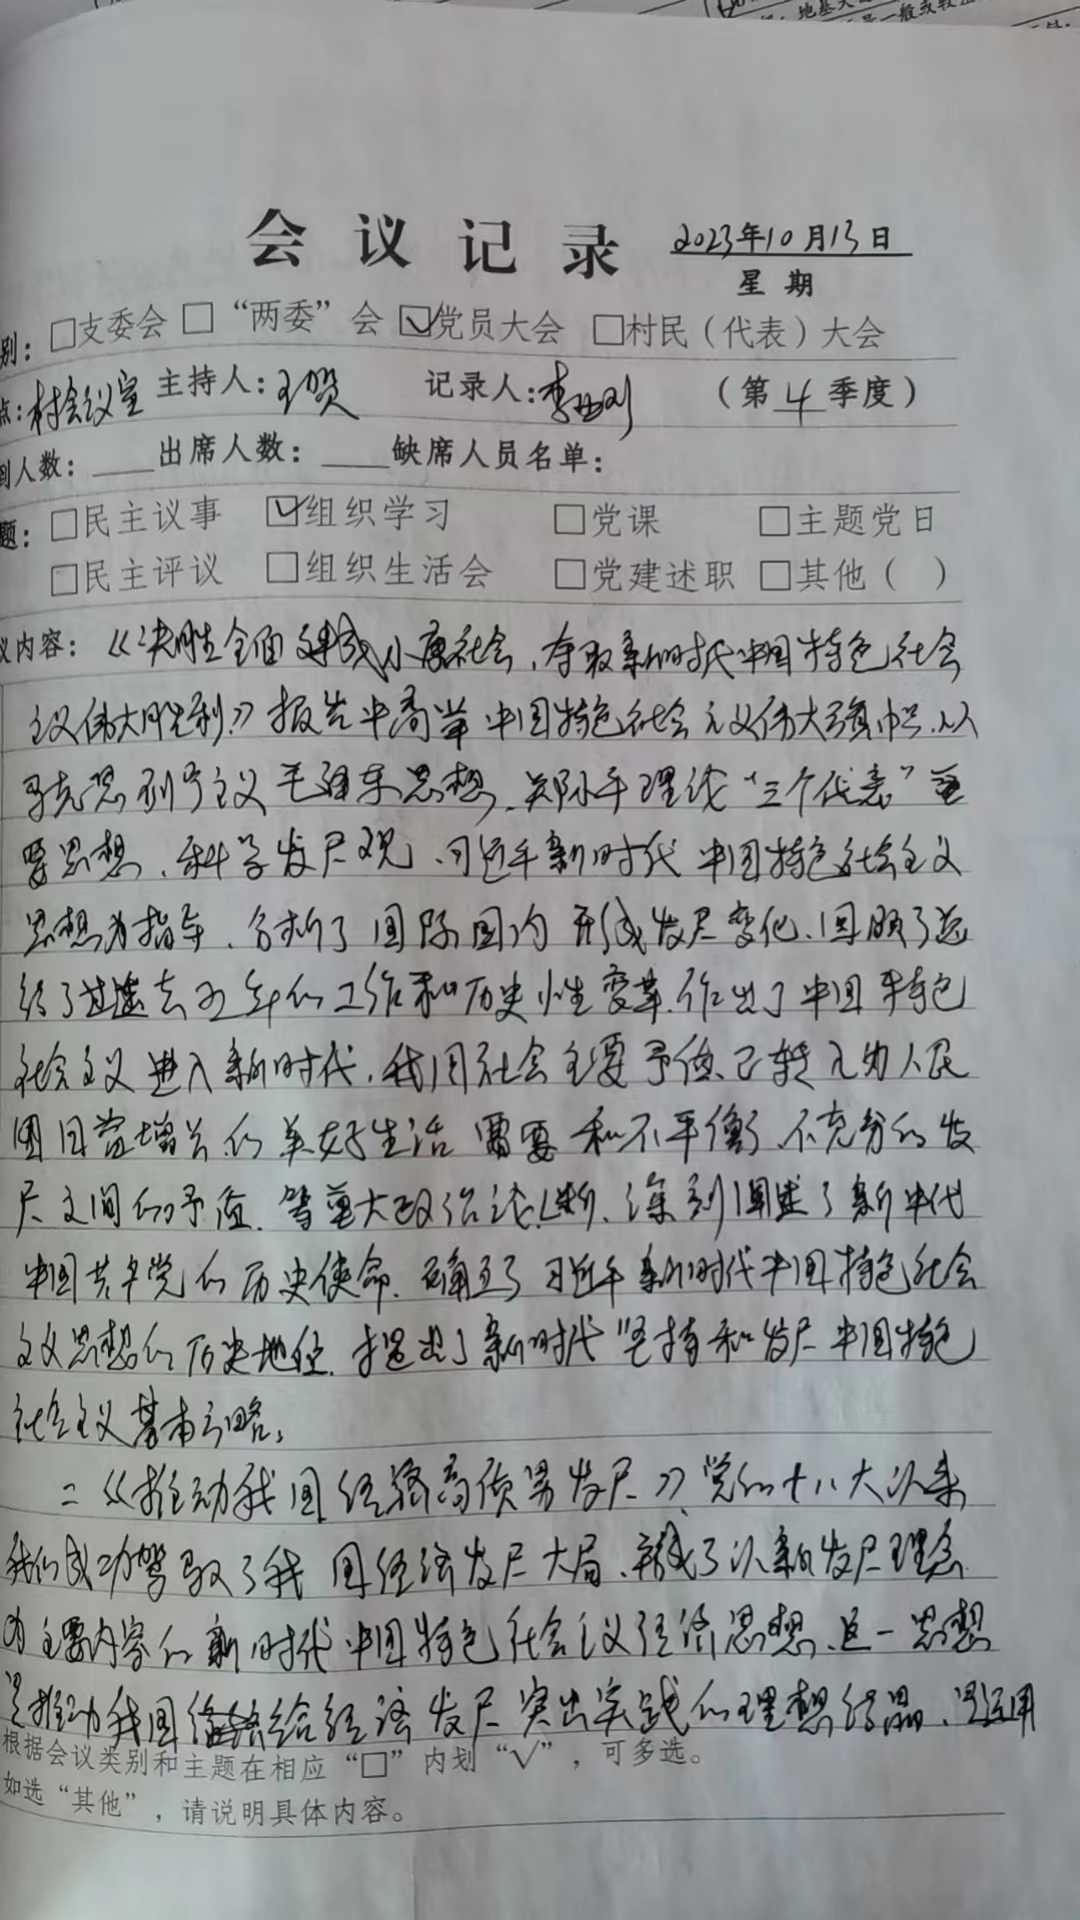 地基大
一般或较
会议记录 2023年10月13日
星期
别：□支委会 □“两委”会 ☑党员大会 □村民（代表）大会
点：村会议室 主持人：王贺 记录人：李 刚 （第4季度）
到人数：____出席人数：____缺席人员名单：
题：□民主议事 ☑组织学习 □党课 □主题党日
□民主评议 □组织生活会 □党建述职 □其他（ ）
议内容：《决胜全面建成小康社会，夺取新时代中国特色社会
主义伟大胜利》报告中高举中国特色社会主义伟大旗帜，以
马克思列宁主义毛泽东思想、邓小平理论“三个代表”重
要思想、科学发展观、习近平新时代中国特色社会主义
思想为指导，分析了国际国内形成发展变化，回顾了总
结了过去五年的工作和历史性变革，作出了中国特色
社会主义进入新时代，我国社会主要矛盾已转化为人民
日益增长的美好生活需要和不平衡不充分的发
展之间的矛盾，等重大政治论断，深刻阐述了新时代
中国共产党的历史使命，确立了习近平新时代中国特色社会
主义思想的历史地位，提出了新时代坚持和发展中国特色
社会主义基本方略。
二《推动我国经济高质量发展》党的十八大以来
我们成功驾驭了我国经济发展大局，形成了以新发展理念
为主要内容的新时代中国特色社会主义经济思想，这一思想
是推动我国经济发展突出实践的理想结晶，是运用
根据会议类别和主题在相应“□”内划“√”，可多选。
如选“其他”，请说明具体内容。